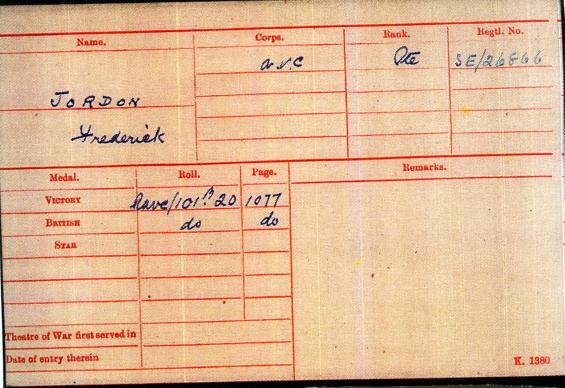 Name. Corps. Rank. Regtl. No.
A.V.C Pte SE/26866
JORDON
Frederick
Medal. Roll. Page. Remarks.
VICTORY RAVC/101 B 20 1077
BRITISH do do
STAR
Theatre of War first served in
Date of entry therein
K. 1380